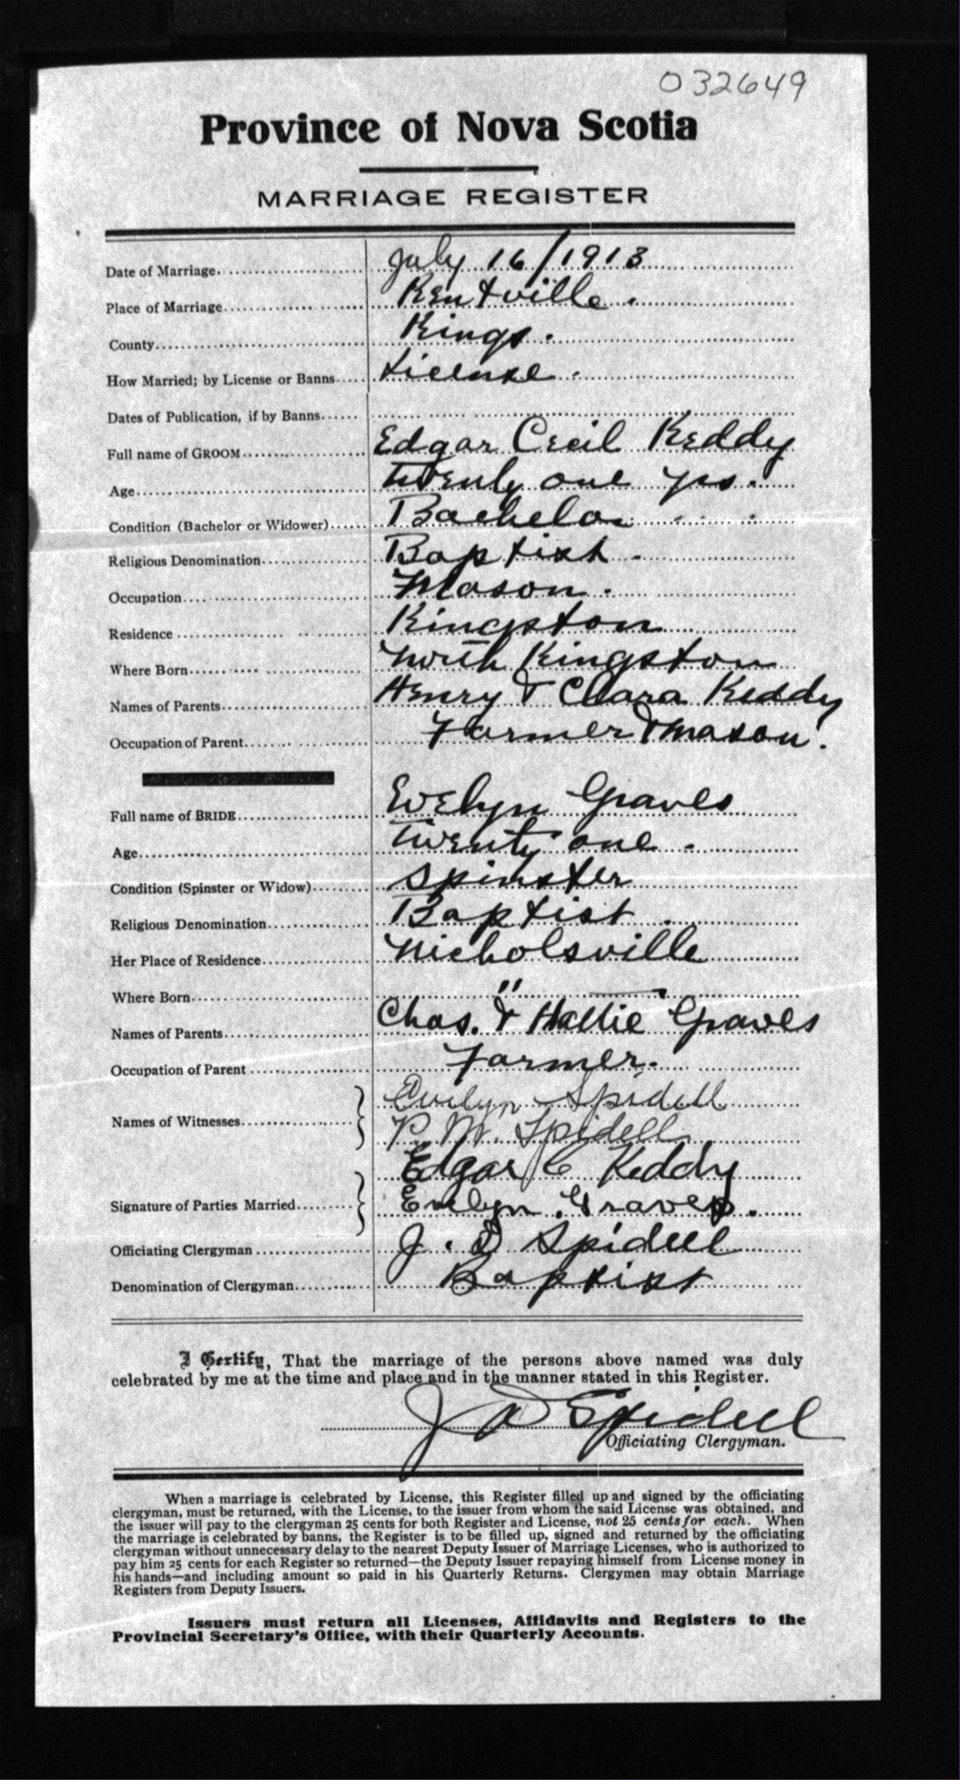 032649
Province of Nova Scotia
MARRIAGE REGISTER
Date of Marriage July 16/1913
Place of Marriage Kentville.
County Kings.
How Married; by License or Banns License.
Dates of Publication, if by Banns
Full name of GROOM Edgar Cecil Keddy
Age twenty one yrs.
Condition (Bachelor or Widower) Bachelor
Religious Denomination Baptist.
Occupation Mason.
Residence Kingston
Where Born North Kingston
Names of Parents Henry & Clara Keddy
Occupation of Parent Farmer & Mason.
Full name of BRIDE Evelyn Graves
Age twenty one.
Condition (Spinster or Widow) Spinster
Religious Denomination Baptist.
Her Place of Residence Nicholsville
Where Born "
Names of Parents Chas. & Hallie Graves
Occupation of Parent Farmer.
Names of Witnesses Evelyn Spidell
P. M. Spidell
Signature of Parties Married Edgar C Keddy
Evelyn Graves.
Officiating Clergyman J. D Spidell
Denomination of Clergyman Baptist
I Certify, That the marriage of the persons above named was duly
celebrated by me at the time and place and in the manner stated in this Register.
J D Spidell
Officiating Clergyman.
When a marriage is celebrated by License, this Register filled up and signed by the officiating
clergyman, must be returned, with the License, to the issuer from whom the said License was obtained, and
the issuer will pay to the clergyman 25 cents for both Register and License, not 25 cents for each. When
the marriage is celebrated by banns, the Register is to be filled up, signed and returned by the officiating
clergyman without unnecessary delay to the nearest Deputy Issuer of Marriage Licenses, who is authorized to
pay him 25 cents for each Register so returned—the Deputy Issuer repaying himself from License money in
his hands—and including amount so paid in his Quarterly Returns. Clergymen may obtain Marriage
Registers from Deputy Issuers.
Issuers must return all Licenses, Affidavits and Registers to the
Provincial Secretary's Office, with their Quarterly Accounts.